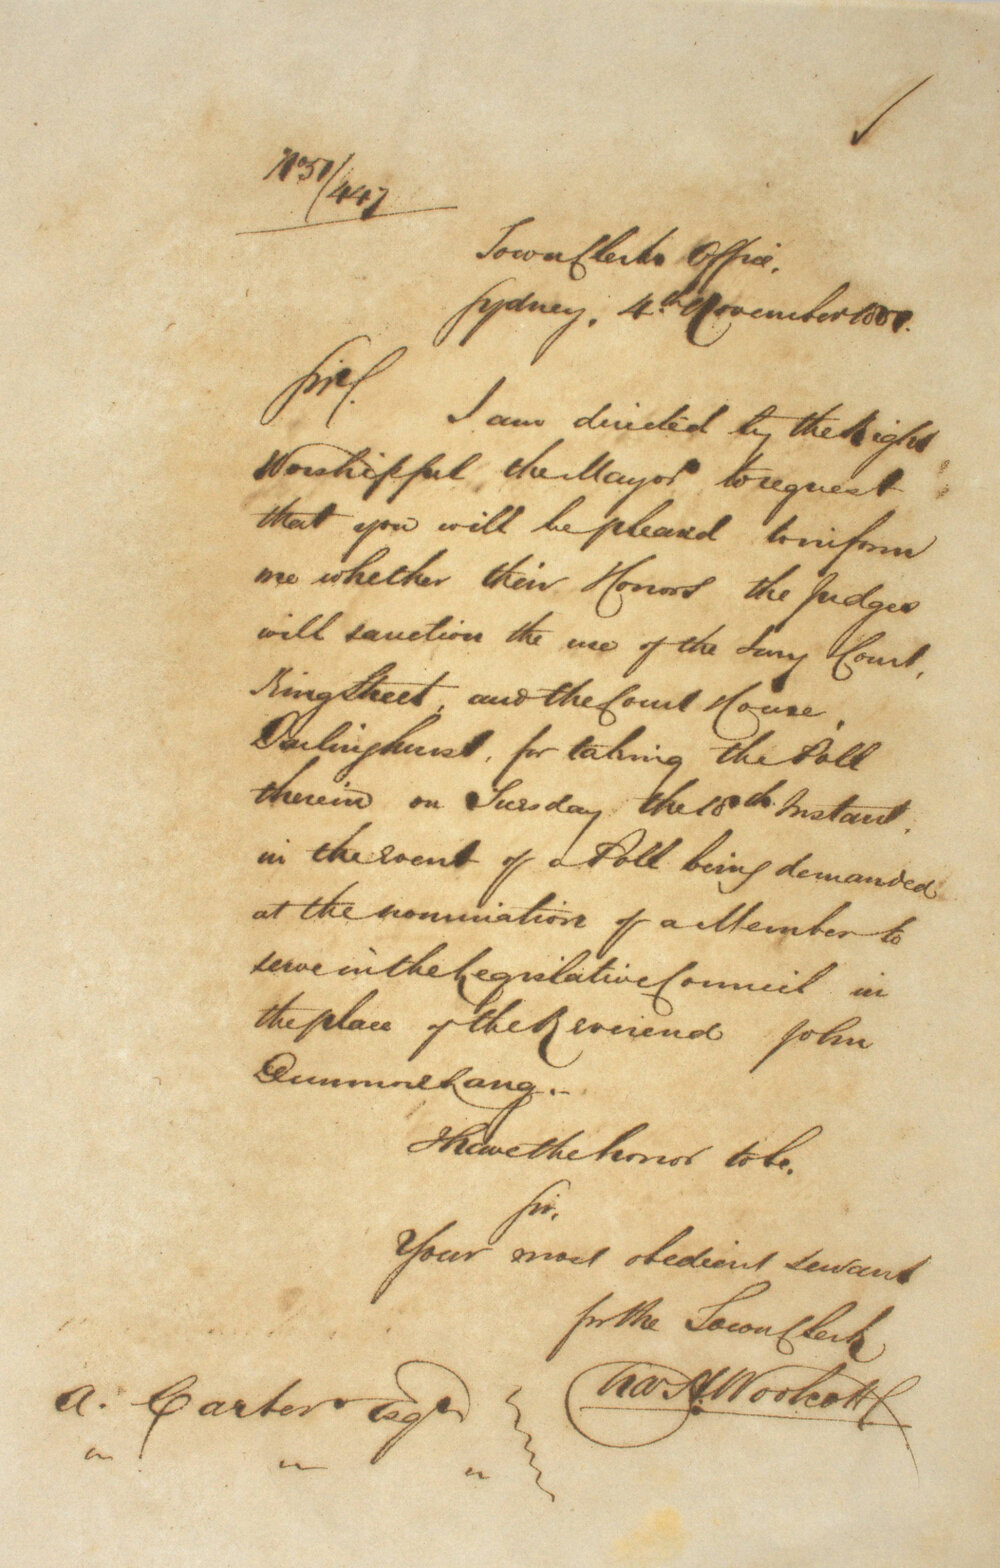 No 51/447
Town Clerks Office,
Sydney, 4th November 1851.
Sir,
I am directed by the Right
Worshipful the Mayor to request
that you will be pleased to inform
me whether their Honors the Judges
will sanction the use of the Jury Court,
King Street, and the Court House,
Darlinghurst, for taking the Poll
therein on Tuesday the 18th Instant,
in the event of a Poll being demanded
at the nomination of a Member to
serve in the Legislative Council in
the place of the Reverend John
Dunmore Lang.
I have the honor to be,
Sir,
Your most obedient servant
for the Town Clerk
Chas H. Woolcott
A. Carter Esqre
" " "